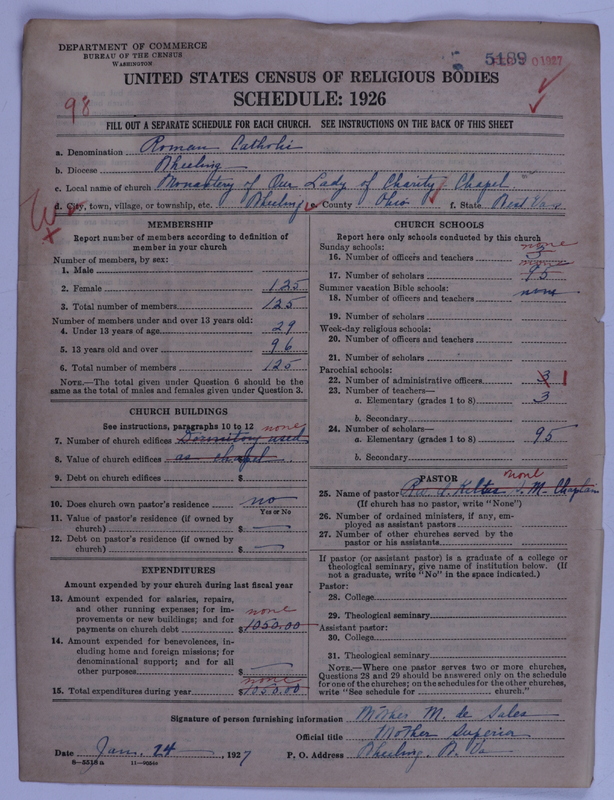 DEPARTMENT OF COMMERCE
BUREAU OF THE CENSUS
WASHINGTON
5189
1927
UNITED STATES CENSUS OF RELIGIOUS BODIES
SCHEDULE: 1926
98
FILL OUT A SEPARATE SCHEDULE FOR EACH CHURCH. SEE INSTRUCTIONS ON THE BACK OF THIS SHEET
a. Denomination Roman Catholic
b. Diocese Wheeling
c. Local name of church Monastery of Our Lady of Charity Chapel
d. City, town, village, or township, etc. Wheeling e. County Ohio f. State West Va
MEMBERSHIP
Report number of members according to definition of
member in your church
Number of members, by sex:
1. Male
2. Female 125
3. Total number of members 125
Number of members under and over 13 years old:
4. Under 13 years of age 29
5. 13 years old and over 96
6. Total number of members 125
NOTE.—The total given under Question 6 should be the
same as the total of males and females given under Question 3.
CHURCH BUILDINGS
See instructions, paragraphs 10 to 12 none
7. Number of church edifices Dormitory used
8. Value of church edifices as chapel
9. Debt on church edifices $
10. Does church own pastor's residence no
Yes or No
11. Value of pastor's residence (if owned by
church) $
12. Debt on pastor's residence (if owned by
church) $
EXPENDITURES
Amount expended by your church during last fiscal year
13. Amount expended for salaries, repairs,
and other running expenses; for im-
provements or new buildings; and for none
payments on church debt $1050.00
14. Amount expended for benevolences, in-
cluding home and foreign missions; for
denominational support; and for all
other purposes $
none
15. Total expenditures during year $1050.00
CHURCH SCHOOLS
Report here only schools conducted by this church
Sunday schools: none
16. Number of officers and teachers 3
none
17. Number of scholars 95
Summer vacation Bible schools:
18. Number of officers and teachers none
19. Number of scholars
Week-day religious schools:
20. Number of officers and teachers
21. Number of scholars
Parochial schools:
22. Number of administrative officers 3 1
23. Number of teachers—
a. Elementary (grades 1 to 8) 3
b. Secondary
24. Number of scholars—
a. Elementary (grades 1 to 8) 95
b. Secondary
PASTOR none
25. Name of pastor S. M. Chaplain
(If church has no pastor, write "None")
26. Number of ordained ministers, if any, em-
ployed as assistant pastors
27. Number of other churches served by the
pastor or his assistants
If pastor (or assistant pastor) is a graduate of a college or
theological seminary, give name of institution below. (If
not a graduate, write "No" in the space indicated.)
Pastor:
28. College
29. Theological seminary
Assistant pastor:
30. College
31. Theological seminary
NOTE.—Where one pastor serves two or more churches,
Questions 28 and 29 should be answered only on the schedule
for one of the churches; on the schedules for the other churches,
write "See schedule for church."
Signature of person furnishing information Mother M. de Sales
Official title Mother Superior
Date Jan. 24, 1927 P. O. Address Wheeling, W. Va
8—5518a 11—9086